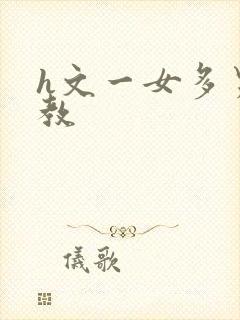 h文一女多男
教
儀歌